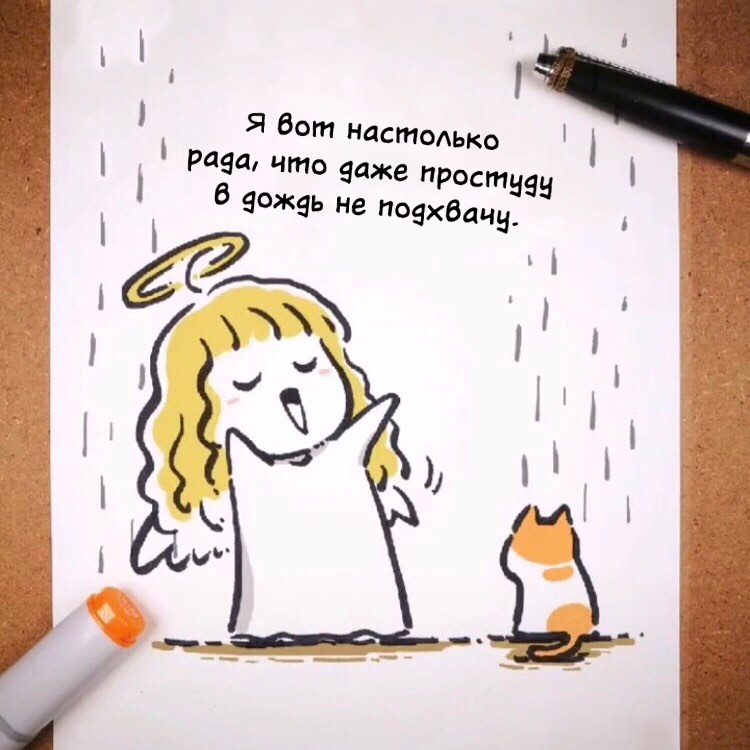 Я вот настолько
рада, что даже простуду
в дождь не подхвачу.